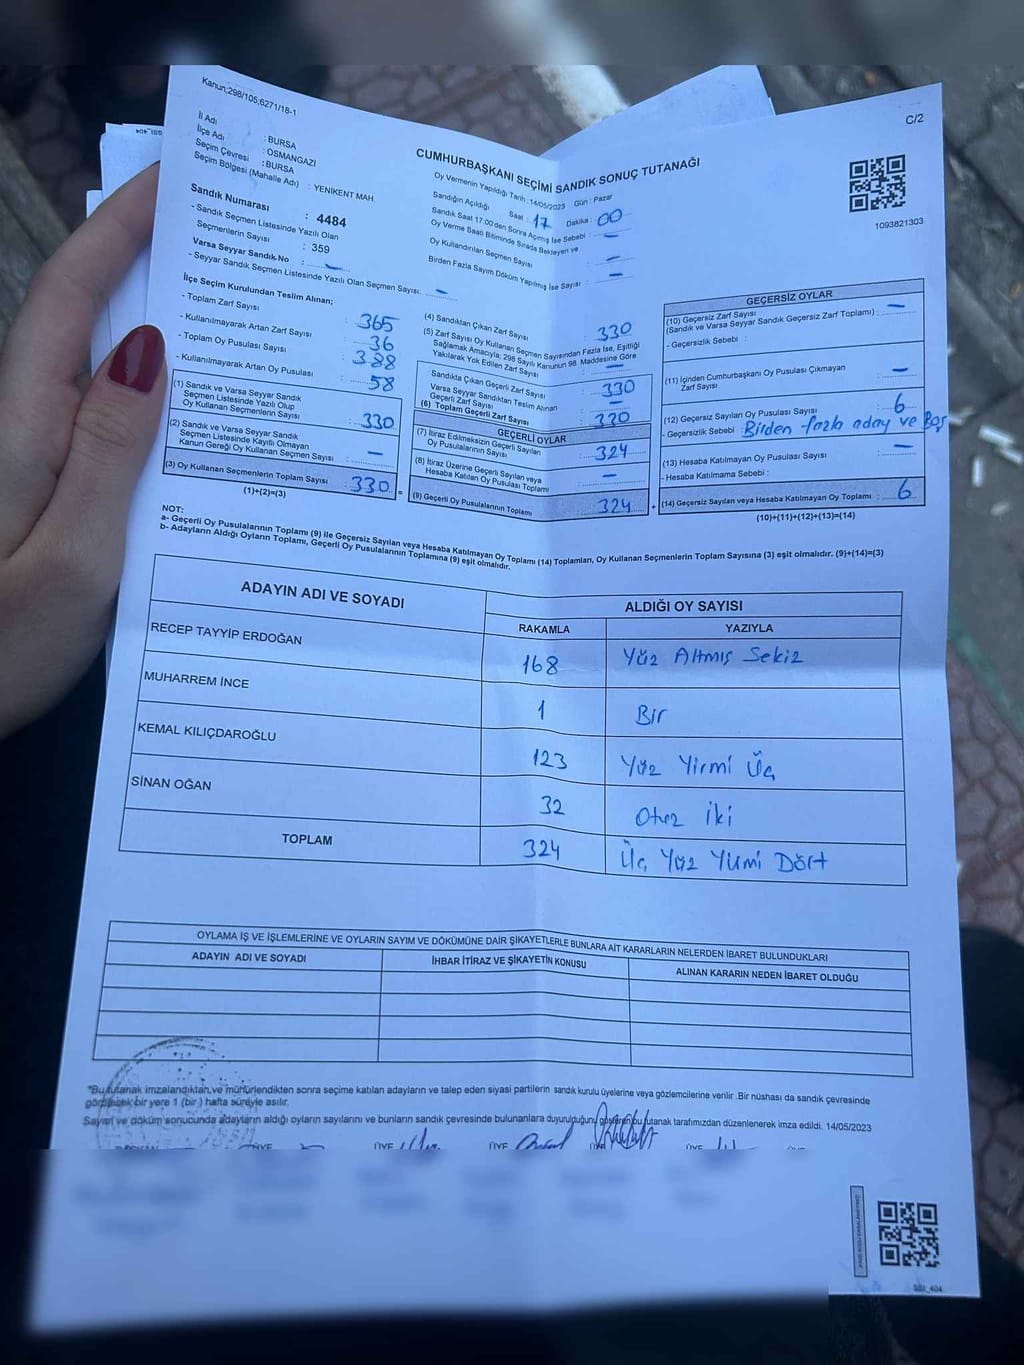 Kanun;298/105,6271/18-1
C/2
İl Adı : BURSA
İlçe Adı : OSMANGAZİ
Seçim Çevresi : BURSA
Seçim Bölgesi (Mahalle Adı) : YENİKENT MAH.
Sandık Numarası : 4484
- Sandık Seçmen Listesinde Yazılı Olan
Seçmenlerin Sayısı : 359
Varsa Seyyar Sandık.No : -
- Seyyar Sandık Seçmen Listesinde Yazılı Olan Seçmen Sayısı: -
CUMHURBAŞKANI SEÇİMİ SANDIK SONUÇ TUTANAĞI
Oy Vermenin Yapıldığı Tarih : 14/05/2023 Gün : Pazar
Sandığın Açıldığı Saat : 17 Dakika : 00
Sandık Saat 17.00'den Sonra Açılmış İse Sebebi : -
Oy Verme Saati Bitiminde Sırada Bekleyen ve
Oy Kullandırılan Seçmen Sayısı : -
Birden Fazla Sayım Döküm Yapılmış İse Sayısı : -
1093821303
İlçe Seçim Kurulundan Teslim Alınan;
- Toplam Zarf Sayısı : 365
- Kullanılmayarak Artan Zarf Sayısı : 36
- Toplam Oy Pusulası Sayısı : 388
- Kullanılmayarak Artan Oy Pusulası : 58
(1) Sandık ve Varsa Seyyar Sandık
Seçmen Listesinde Yazılı Olup
Oy Kullanan Seçmenlerin Sayısı : 330
(2) Sandık ve Varsa Seyyar Sandık
Seçmen Listesinde Kayıtlı Olmayan
Kanun Gereği Oy Kullanan Seçmen Sayısı : -
(3) Oy Kullanan Seçmenlerin Toplam Sayısı : 330
(1)+(2)=(3)
(4) Sandıktan Çıkan Zarf Sayısı : 330
(5) Zarf Sayısı Oy Kullanan Seçmen Sayısından Fazla İse, Eşitliği
Sağlamak Amacıyla; 298 Sayılı Kanunun 98. Maddesine Göre
Yakılarak Yok Edilen Zarf Sayısı : -
Sandıkta Çıkan Geçerli Zarf Sayısı : 330
Varsa Seyyar Sandıktan Teslim Alınan
Geçerli Zarf Sayısı : -
(6) Toplam Geçerli Zarf Sayısı : 330
GEÇERLİ OYLAR
(7) İtiraz Edilmeksizin Geçerli Sayılan
Oy Pusulalarının Sayısı : 324
(8) İtiraz Üzerine Geçerli Sayılan veya
Hesaba Katılan Oy Pusulası Toplamı : -
(9) Geçerli Oy Pusulalarının Toplamı : 324
GEÇERSİZ OYLAR
(10) Geçersiz Zarf Sayısı : -
(Sandık ve Varsa Seyyar Sandık Geçersiz Zarf Toplamı)
- Geçersizlik Sebebi :
(11) İçinden Cumhurbaşkanı Oy Pusulası Çıkmayan
Zarf Sayısı : -
(12) Geçersiz Sayılan Oy Pusulası Sayısı : 6
- Geçersizlik Sebebi : Birden fazla aday ve Boş
(13) Hesaba Katılmayan Oy Pusulası Sayısı : -
- Hesaba Katılmama Sebebi :
(14) Geçersiz Sayılan veya Hesaba Katılmayan Oy Toplamı : 6
(10)+(11)+(12)+(13)=(14)
NOT:
a- Geçerli Oy Pusulalarının Toplamı (9) ile Geçersiz Sayılan veya Hesaba Katılmayan Oy Toplamı (14) Toplamları, Oy Kullanan Seçmenlerin Toplam Sayısına (3) eşit olmalıdır. (9)+(14)=(3)
b- Adayların Aldığı Oyların Toplamı, Geçerli Oy Pusulalarının Toplamına (9) eşit olmalıdır.
ADAYIN ADI VE SOYADI ALDIĞI OY SAYISI
RAKAMLA YAZIYLA
RECEP TAYYİP ERDOĞAN 168 Yüz Altmış Sekiz
MUHARREM İNCE 1 Bir
KEMAL KILIÇDAROĞLU 123 Yüz Yirmi Üç
SİNAN OĞAN 32 Otuz iki
TOPLAM 324 Üç Yüz Yirmi Dört
OYLAMA İŞ VE İŞLEMLERİNE VE OYLARIN SAYIM VE DÖKÜMÜNE DAİR ŞİKAYETLERLE BUNLARA AİT KARARLARIN NELERDEN İBARET BULUNDUKLARI
ADAYIN ADI VE SOYADI İHBAR İTİRAZ VE ŞİKAYETİN KONUSU ALINAN KARARIN NEDEN İBARET OLDUĞU
*Bu tutanak imzalandıktan ve mühürlendikten sonra seçime katılan adayların ve talep eden siyasi partilerin sandık kurulu üyelerine veya gözlemcilerine verilir. Bir nüshası da sandık çevresinde
görülecek bir yere 1 (bir) hafta süreyle asılır.
Sayım ve döküm sonucunda adayların aldığı oyların sayılarını ve bunların sandık çevresinde bulunanlara duyurulduğunu gösteren bu tutanak tarafımızdan düzenlenerek imza edildi. 14/05/2023
ÜYE ÜYE ÜYE ÜYE ÜYE
SSI_404